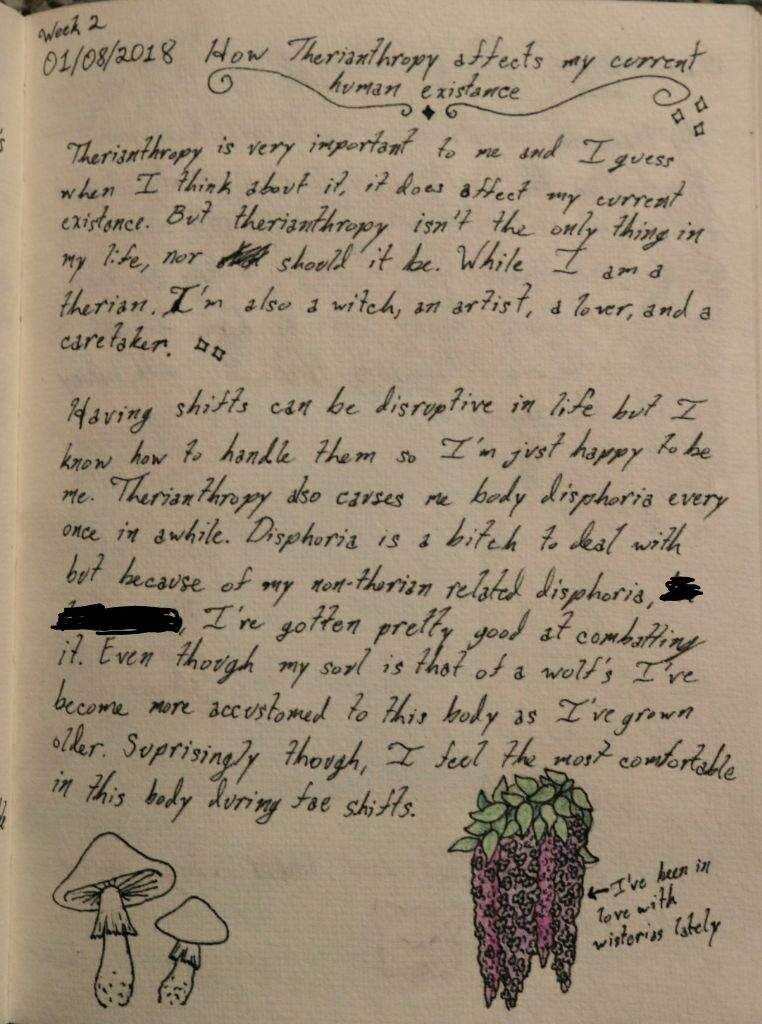 Week 2
01/08/2018 How Therianthropy affects my current
human existance
Therianthropy is very important to me and I guess
when I think about it, it does affect my current
existance. But therianthropy isn't the only thing in
my life, nor should it be. While I am a
therian, I'm also a witch, an artist, a lover, and a
caretaker.
Having shifts can be disruptive in life but I
know how to handle them so I'm just happy to be
me. Therianthropy also causes me body disphoria every
once in awhile. Disphoria is a bitch to deal with
but because of my non-therian related disphoria,
, I've gotten pretty good at combatting
it. Even though my soul is that of a wolf's I've
become more accustomed to this body as I've grown
older. Suprisingly though, I feel the most comfortable
in this body during fae shifts.
←I've been in
love with
wisterias lately